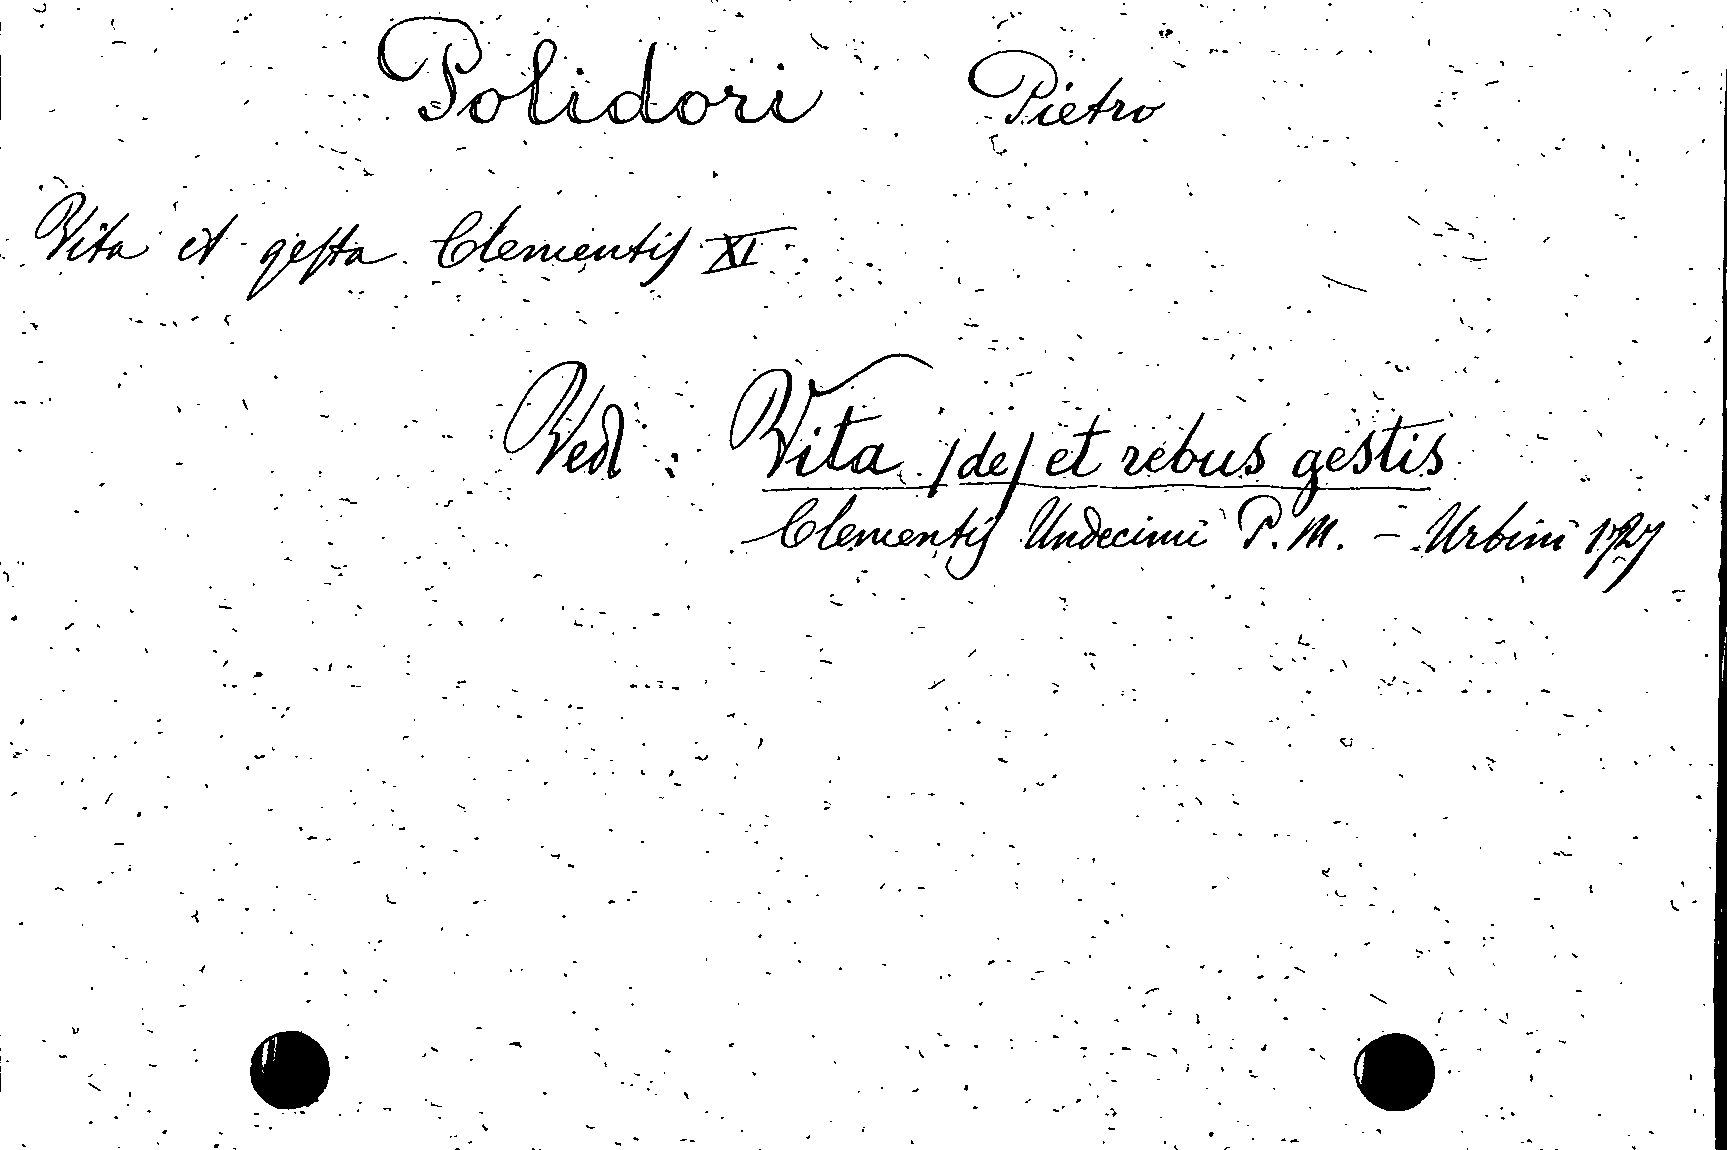 Polidori Pietro
Vita et gesta Clementis XI
Ved: Vita /de/ et rebus gestis
Clementis Undecimi P. M. - Urbini 1727